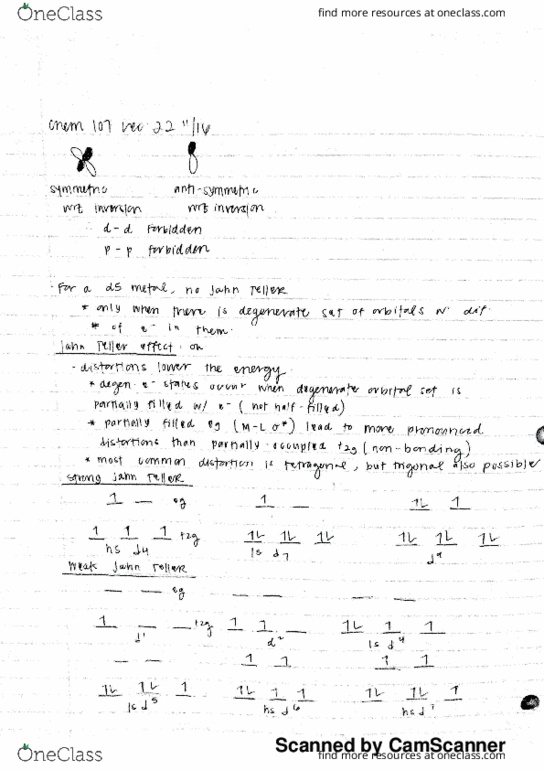 OneClass
find more resources at oneclass.com
chem 107 lec 22 11/16
symmetric anti-symmetric
wrt inversion wrt inversion
d-d forbidden
p-p forbidden
· for a d5 metal, no jahn teller
* only when there is degenerate set of orbitals w/ dif.
# of e- in them.
jahn teller effect on
· distortions lower the energy
* degen. e- states occur when degenerate orbital set is
partially filled w/ e- (not half-filled)
* partially filled eg (M-L σ*) lead to more pronounced
distortions than partially-occupied t2g (non-bonding)
* most common distortion is tetragonal, but trigonal also possible
strong jahn teller
1 — eg 1 — 1L 1
1 1 1 t2g 1L 1L 1L 1L 1L 1L
hs d4 ls d7 d9
weak jahn teller
— — eg — — — —
1 — — t2g 1 1 — 1L 1 1
d1 d2 ls d4
— — 1 1 1 1
1L 1L 1 1L 1 1 1L 1L 1
ls d5 hs d6 hs d7
Scanned by CamScanner
OneClass
find more resources at oneclass.com